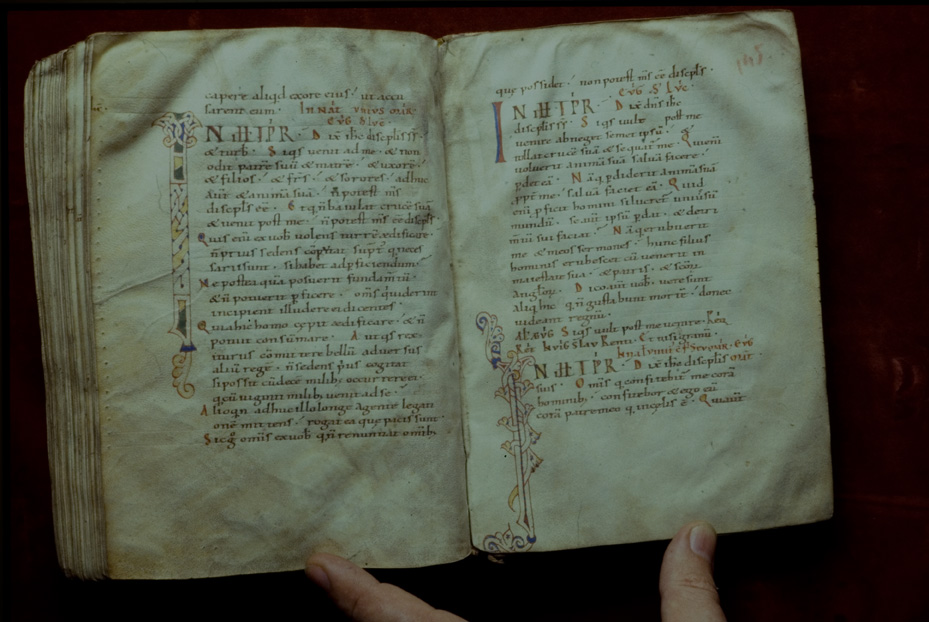 capere aliqd ex ore eius · ut accu
sarent eum · IN NAT UNIUS
EVG S LVC
IN ILL TPR · Dix ihc discplis
& turb · Siqs venit ad me · & non
odit patrē suū & matrē · & uxorē
& filios · & frs · & sorores · adhuc
aut & animā suā · n potest ms
discpls eē · Et q n baiulat crucē suā
& venit post me · n potest ms eē discpls
Quis enī ex vob volens turrē ædificare
n prius sedens
sarii sunt · si habet ad pficiendum
Ne postea qua posuerit fundamtū
& n potuerit pficere · oms qui uident
incipient illudere ei dicentes
Quia hic homo cepit ædificare · & n
potuit consūmare · Aut qs rex
iturus cōmittere bellū adversus
aliū regē · n sedens prius cogitat
si possit cū decē milib occurrere ei
q cū viginti milib venit ad se ·
Alioqn adhuc illo longe agente legati
onē mittens · rogat ea que pacis sunt
Sic g omis ex vob q n renuntiat omib
que possidet · non potest ms eē discpls ·
EVG S LVC
IN ILL TPR · Dix dns ihc
discplis · Siqs vult post me
venire abneget semet ipsū · &
tollat crucē suā & sequat me · Qui enī
voluerit animā suā salvā facere
pdet eā · Nā q pdiderit animā suā
ppt me · salvā faciet eā · Quid
enī pficit homini si lucret universū
mundū · se aut ipsū pdat · & detri
mtū sui faciat · Nā q erubuerit
me & meos sermones · hunc filius
hominis erubescet cū venerit in
maiestate sua · & patris · & scōrū
anglorū · Dico aūt vob · vere sunt
aliq hic q n gustabunt mortē · donec
videant regnū
Siqs vult post me venire
IN ILL TPR · Dix ihc discplis
suis · Omis q confitebit me corā
hominib · confitebor & ego eū
corā patre meo q in celis ē · Qui aūt